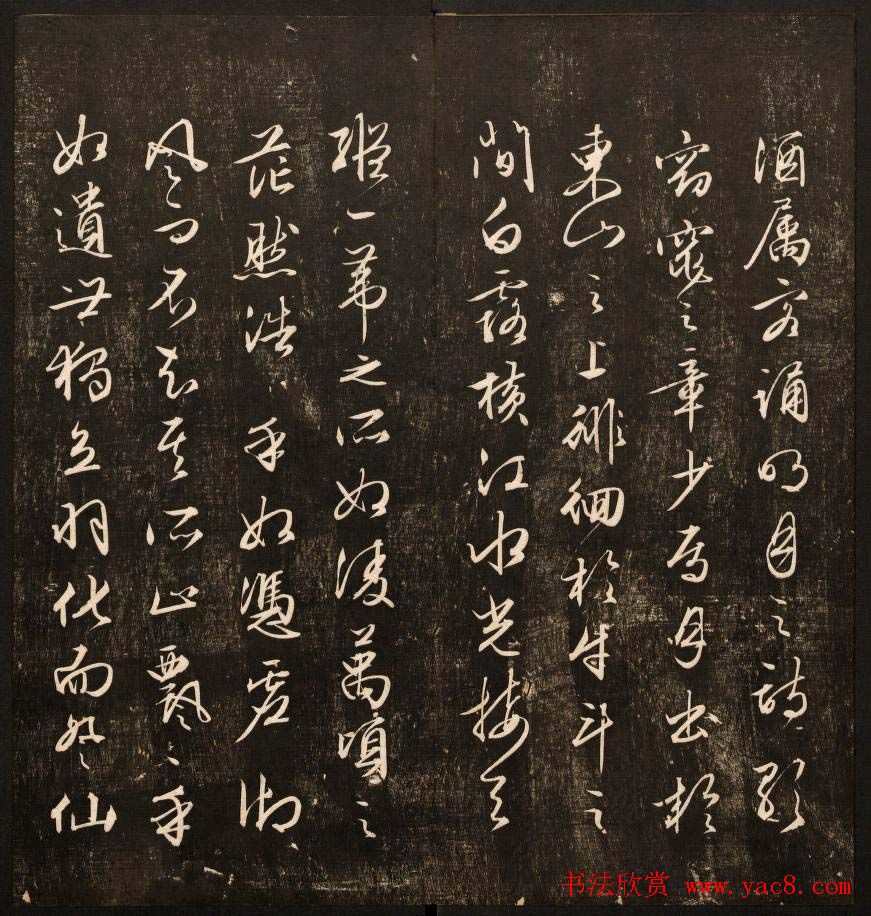 酒属客誦明月之詩歌
窈窕之章少焉月出於
東山之上徘徊於牛斗之
間白露横江水光接天
縱一葦之所如凌萬頃之
茫然浩浩乎如憑虚御
風而不知其所止飄飄乎
如遺世獨立羽化而登仙
书法欣赏 www.yac8.com